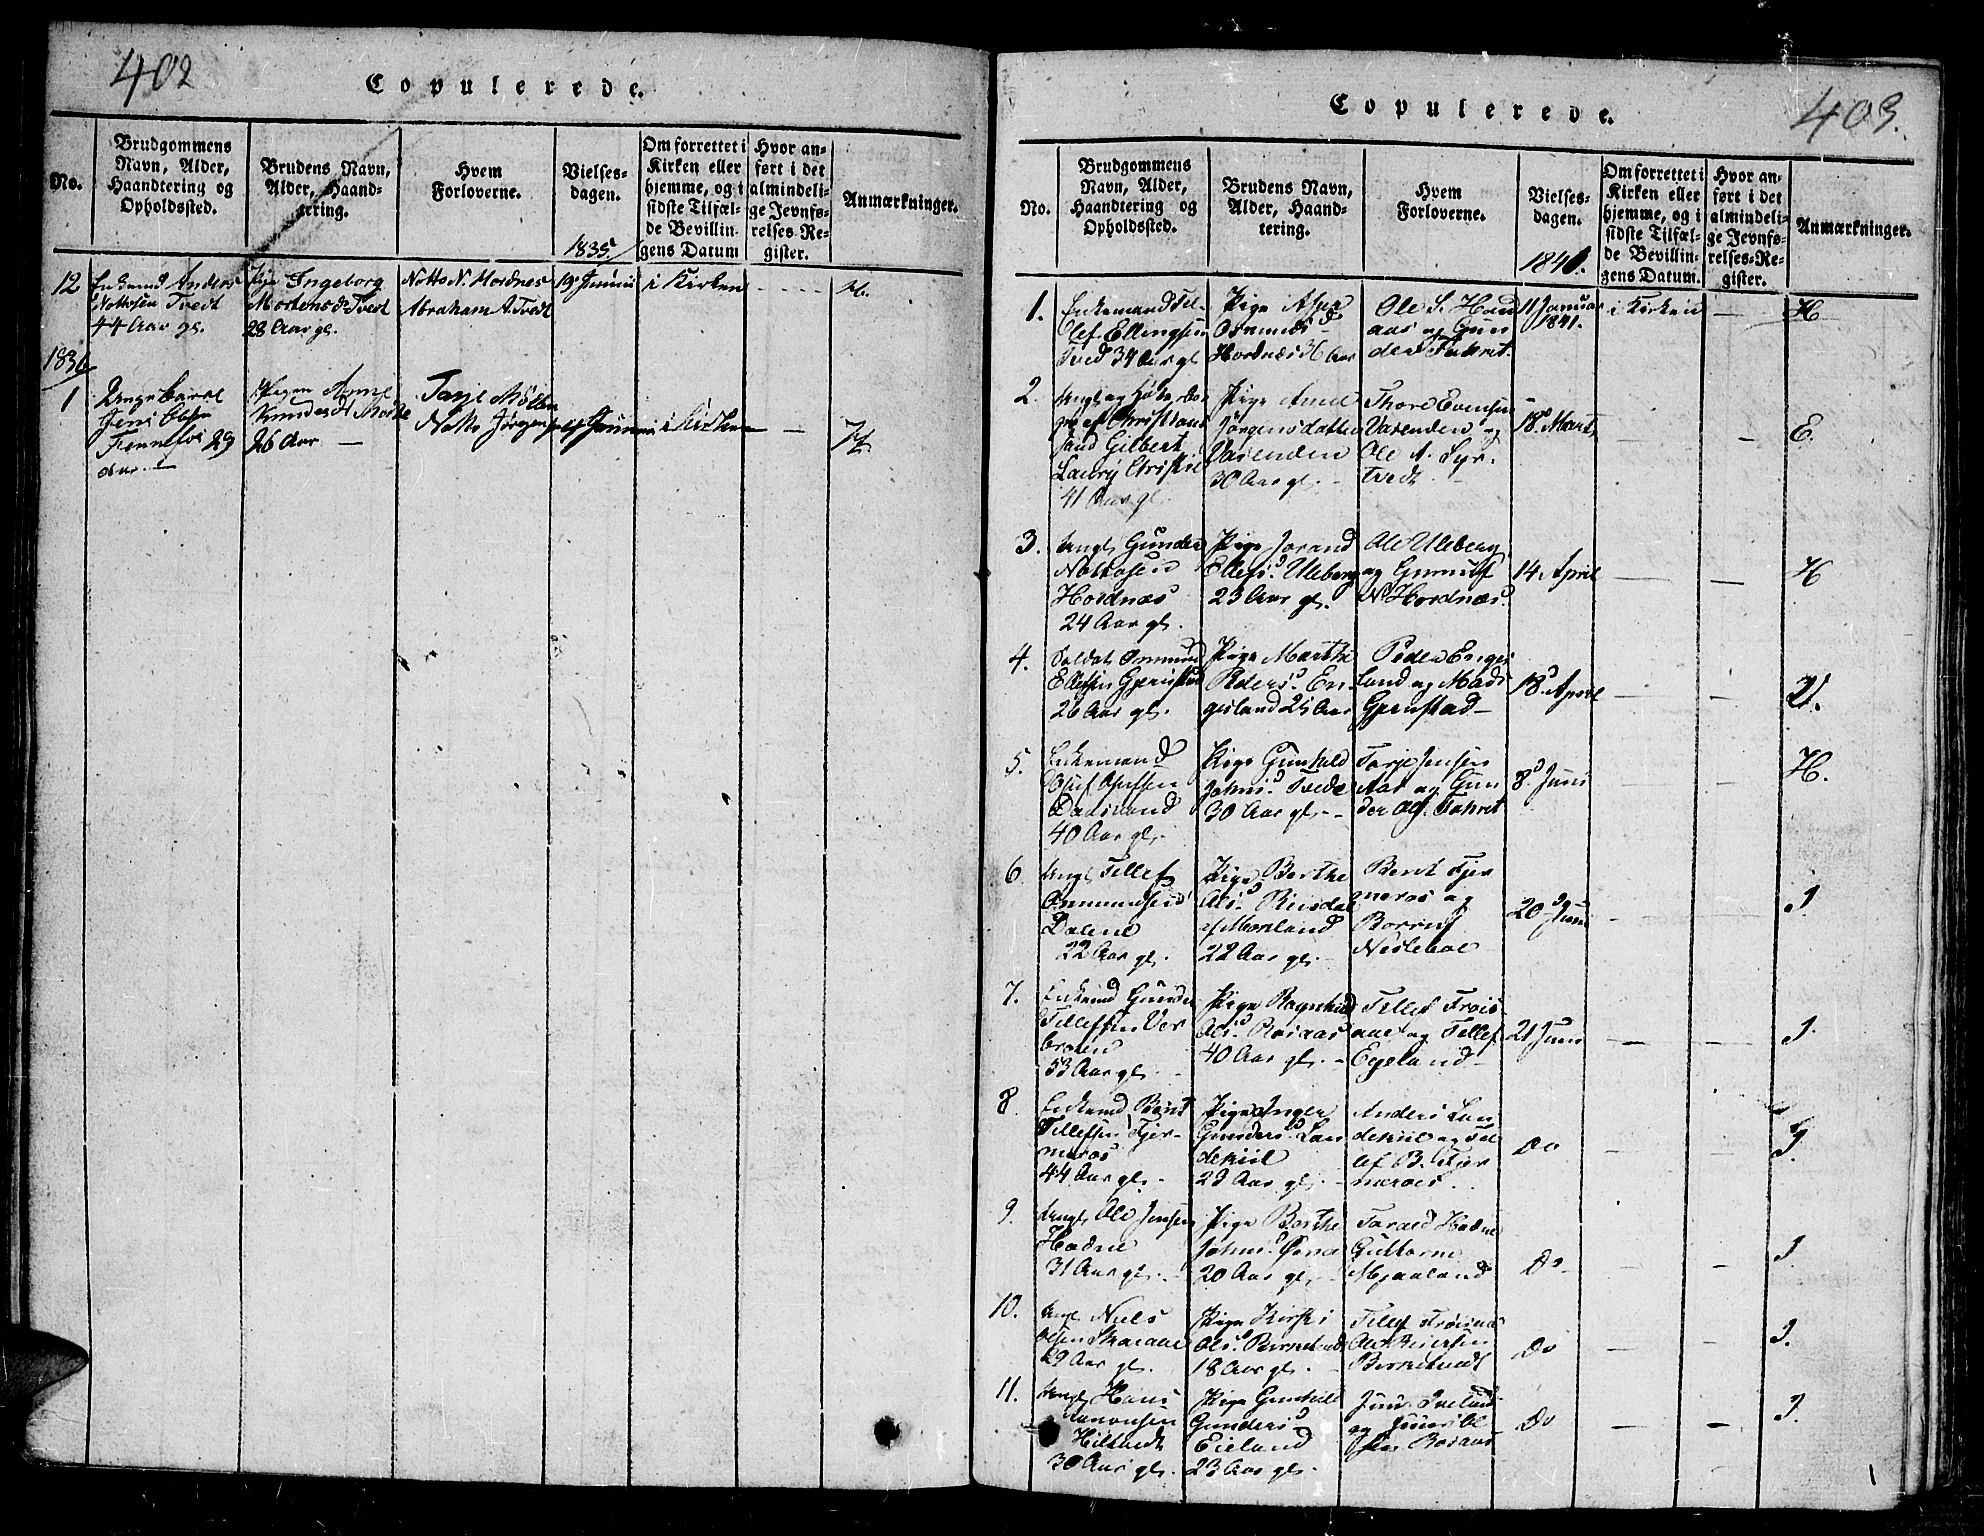 402
Copulerede.
No.
Brudgommens
Navn, Alder,
Haandtering og
Opholdssted.
Brudens Navn,
Alder, Haand-
tering.
Hvem
Forloverne.
Vielses-
dagen.
1835.
Om forrettet i
Kirken eller
hjemme, og i
sidste Tilfæl-
de Bevillin-
gens Datum
Hvor an-
ført i det
almindeli-
ge Jevnfø-
relses-Re-
gister.
Anmærkninger.
12
Enkemd Anders
Nottosen Tvedt
44 Aar gl.
Pige Ingeborg
Mortensd. Tvedt
28 Aar gl.
Notto N. Hordnes
Abraham A. Tvedt
19 Junii
i Kirken
H.
1836
1
Jens
29
Aar.
Anne
Knudsd.
26 Aar
Tarje
Notto Jørgen
i Kirken
403.
Copulerede.
No.
Brudgommens
Navn, Alder,
Haandtering og
Opholdssted.
Brudens Navn,
Alder, Haand-
tering.
Hvem
Forloverne.
Vielses-
dagen.
1841.
Om forrettet i
Kirken eller
hjemme, og i
sidste Tilfæl-
de Bevillin-
gens Datum.
Hvor an-
ført i det
almindeli-
ge Jevnfø-
relses-Re-
gister.
Anmærkninger.
1.
Enkemand Tel-
lef Ellingsen
Tved 34 Aar gl.
Pige Asper
Osmunds d
Hordnæs 36 Aar
Ole S. Haa
aas og Gun
der Takset.
11 Januar
1841.
i Kirken
H
2.
Christians
sand Gilbert
Laury Christie
41 Aar gl.
Pige Anne
Jørgensdatter
Vasenden
30 Aar gl.
Thore Evensen
Vasenden og
Ole A. Syr-
tvedt.
18 Marts
E.
3.
Ungk Gunder
Nottosen
Hordnæs
24 Aar gl.
Pige Jorand
Ellefsd. Uleberg
23 Aar gl.
Ole Uleberg
og Gunulf
N. Hordnæs.
14 April
H
4.
Soldat Osmund
Ellefsen Gjerustad
26 Aar gl.
Pige Marthe
Pedersd. En-
gesland 25 Aar
Peder Enges
land og Mads
Gjerustad
18 April
V.
5.
Enkemand
Olef Olefsen
40 Aar gl.
Pige Gunhild
Johnsd. Tvede
30 Aar gl.
Tarje Jensen
Aas og Gun
der Takset
8 Juni
H.
6.
Ungk Tellef
Osmundsen
Dalene
22 Aar gl.
Pige Berthe
Olsd. Rinsdal
af Moseland
22 Aar gl.
Bernt Fjer
meros og
Nesleboe
20 Juni
I.
7.
Enkemd Gunder
Tellefsen Ver
braaten
53 Aar gl.
Pige Ragnhild
Olsd. Rosaas
40 Aar gl.
Tellef Frøis-
aae og Tellef
Egeland
21 Juni
I.
8
Enkemd Bernt
Tellefsen Fjer-
meros
44 Aar gl.
Pige Inger
Gundersd. Lan
dekiil
23 Aar gl.
Anders Lan
dekiil og Tel
lef B. Fjer
meros.
Do
I.
9.
Ungk Ole Jensen
Hodne
31 Aar gl.
Pige Berthe
Johnsd.
20 Aar gl.
Hodne
Guttorm
Mjaaland
Do
I.
10.
Ungk Niels
Olsen Skaiaae
29 Aar gl.
Pige Kirsti
Olsd. Birkelund
18 Aar gl.
Tellef Frøisaae
Birkelund
Do
I.
11.
Ungk Hans
Aanonsen
Hiltvedt
30 Aar gl.
Pige Gunhild
Gundersd
Eieland
23 Aar gl.
Juni Iveland
og Jens Ol
sen Rosaas
Do
I.